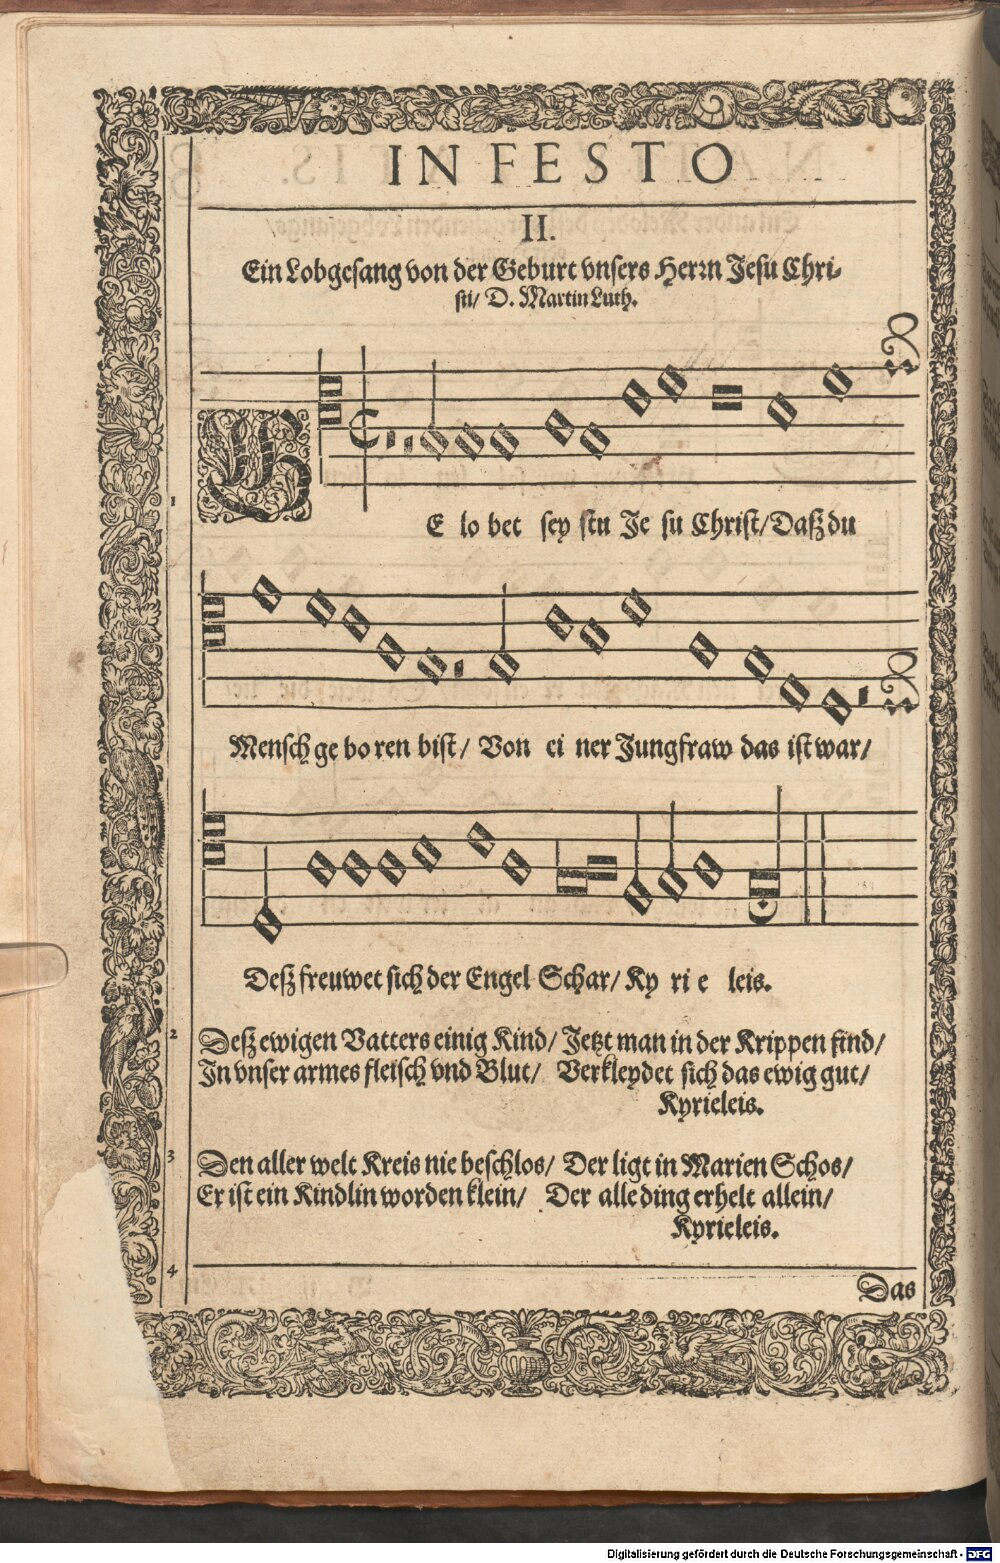 IN FESTO
II.
Ein Lobgesang von der Geburt vnsers Herrn Jesu Chri-
sti/ D. Martin Luth.
1
GE lo bet sey stu Je su Christ/ Daß du
Mensch ge bo ren bist/ Von ei ner Jungfraw das ist war/
Deß freuwet sich der Engel Schar/ Ky ri e leis.
2 Deß ewigen Vatters einig Kind/ Jetzt man in der Krippen find/
In vnser armes fleisch vnd Blut/ Verkleydet sich das ewig gut/
Kyrieleis.
3 Den aller welt Kreis nie beschlos/ Der ligt in Marien Schos/
Er ist ein Kindlin worden klein/ Der alle ding erhelt allein/
Kyrieleis.
4
Das
Digitalisierung gefördert durch die Deutsche Forschungsgemeinschaft - DFG